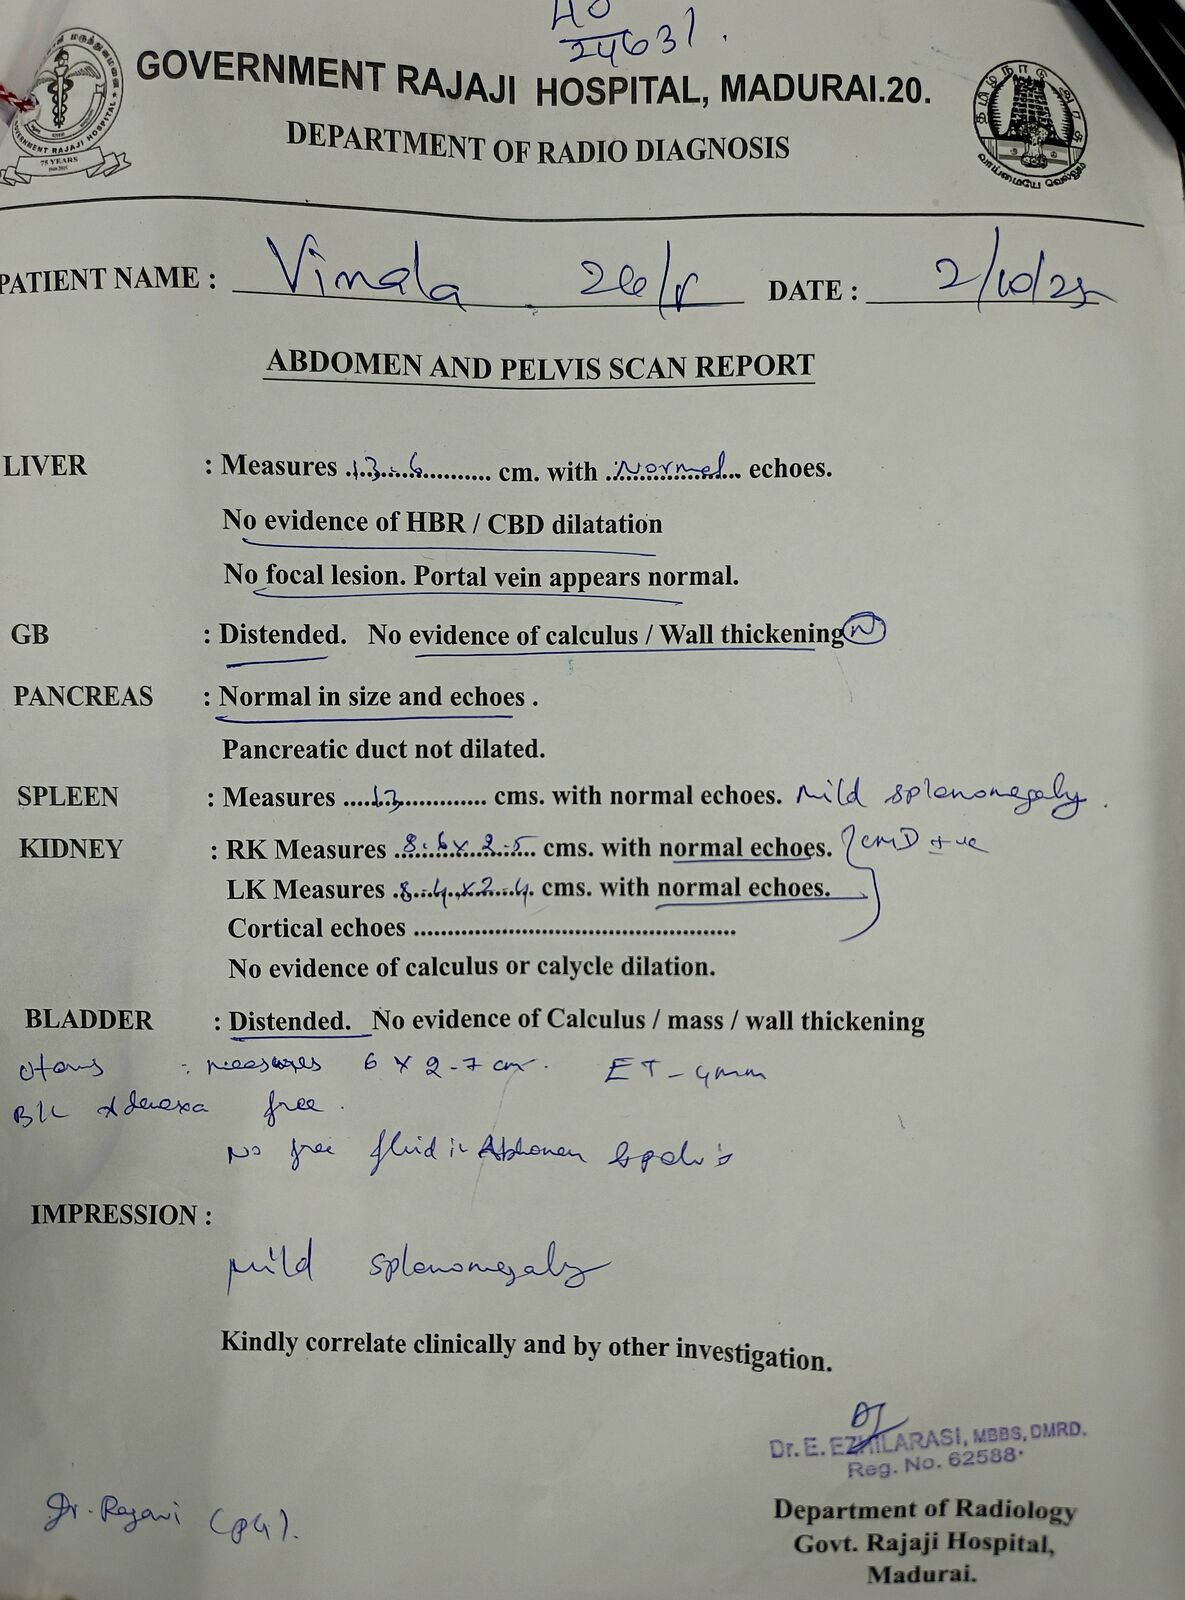 40
24631.
GOVERNMENT RAJAJI HOSPITAL, MADURAI.20.
DEPARTMENT OF RADIO DIAGNOSIS
GOVERNMENT RAJAJI HOSPITAL
75 YEARS
தமிழ்நாடு அரசு
வாய்மையே வெல்லும்
PATIENT NAME : Vimala 26/F DATE : 2/10/25
ABDOMEN AND PELVIS SCAN REPORT
LIVER : Measures 13.6 cm. with Normal echoes.
No evidence of HBR / CBD dilatation
No focal lesion. Portal vein appears normal.
GB : Distended. No evidence of calculus / Wall thickening N
PANCREAS : Normal in size and echoes .
Pancreatic duct not dilated.
SPLEEN : Measures 13 cms. with normal echoes. Mild splenomegaly.
KIDNEY : RK Measures 8.6 x 2.5 cms. with normal echoes. CMD +ve
LK Measures 8.4 x 2.4 cms. with normal echoes.
Cortical echoes ................................................
No evidence of calculus or calycle dilation.
BLADDER : Distended. No evidence of Calculus / mass / wall thickening
Uterus : measures 6 x 2.7 cm. ET - 4mm
B/L adenexa free.
No free fluid in Abdomen & pelvis
IMPRESSION :
Mild splenomegaly
Kindly correlate clinically and by other investigation.
Dr. E. EZHILARASI, MBBS, DMRD.
Reg. No. 62588
Dr. Rajani (PG).
Department of Radiology
Govt. Rajaji Hospital,
Madurai.